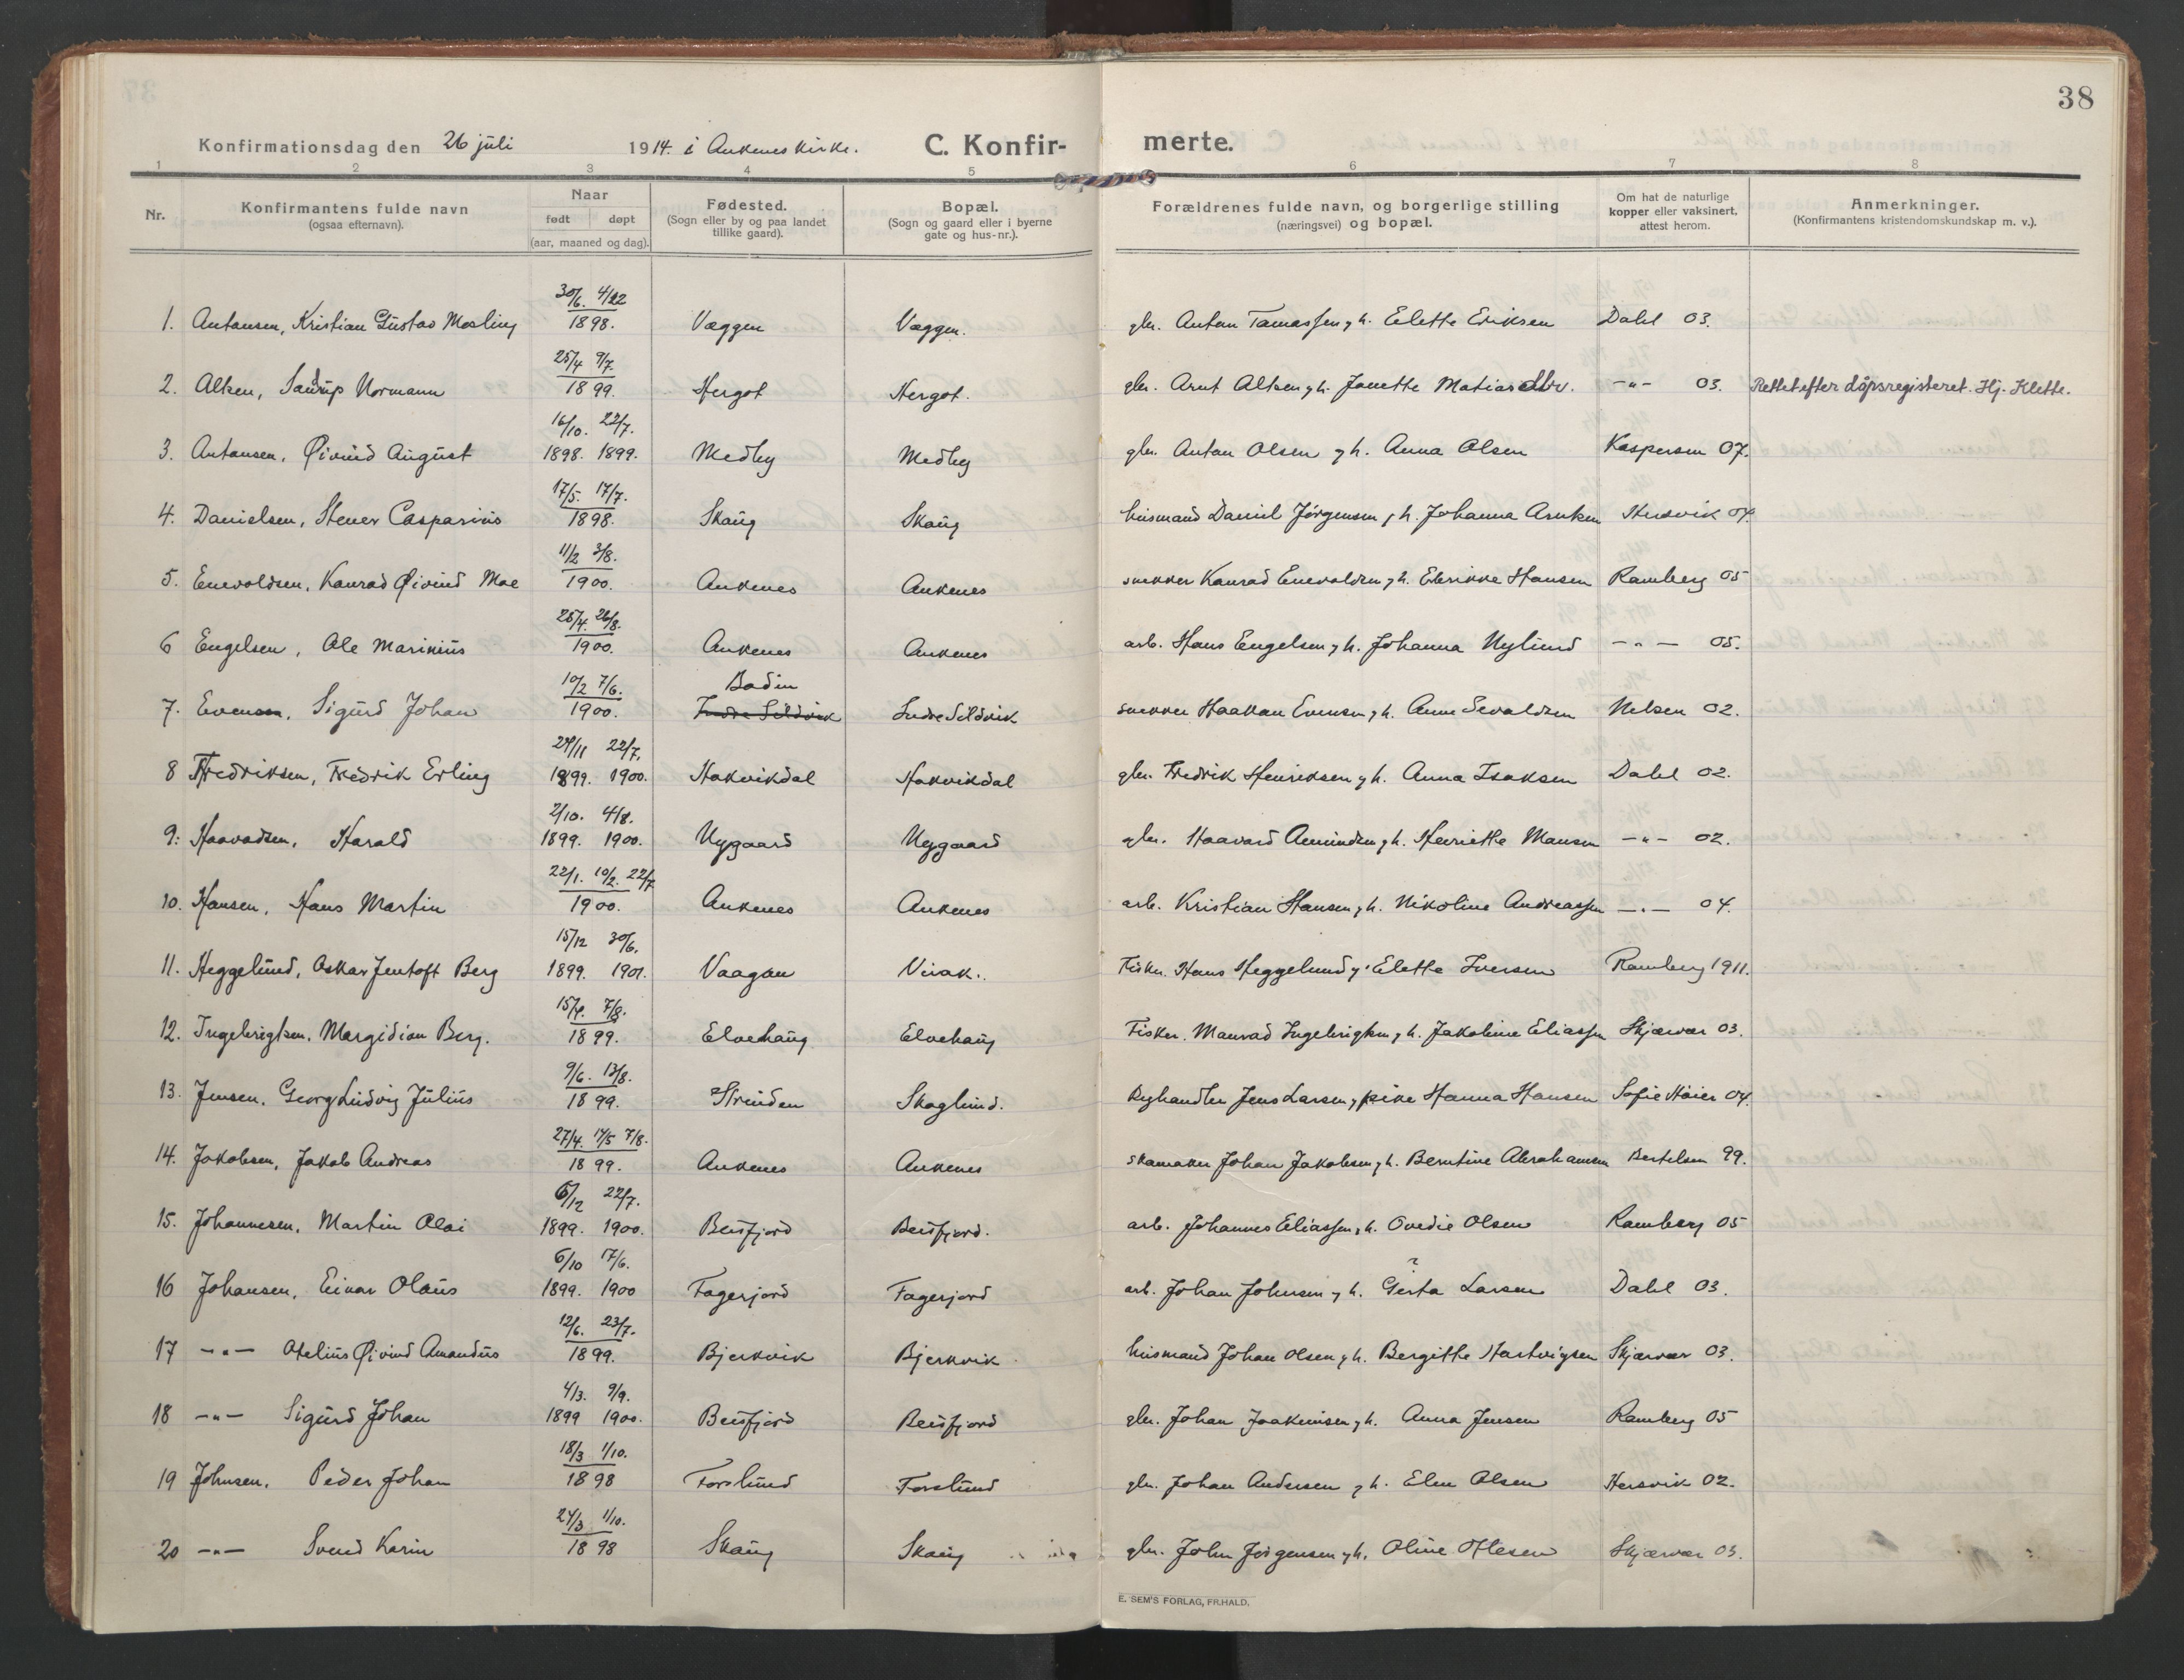 38
Konfirmationsdag den 26 juli 1914. i Ankenes kirke. C. Konfirmerte.
1 2 3 4 5 6 7 8
Nr. Konfirmantens fulde navn (ogsaa efternavn). Naar født døpt (aar, maaned og dag). Fødested. (Sogn eller by og paa landet tillike gaard). Bopæl. (Sogn og gaard eller i byerne gate og hus-nr.). Forældrenes fulde navn, og borgerlige stilling (næringsvei) og bopæl. Om hat de naturlige kopper eller vaksinert, attest herom. Anmerkninger. (Konfirmantens kristendomskundskap m. v.).
1. Antonsen, Kristian Gustav Mosling 30/6. 4/12 1898. Væggen Væggen. gbr. Anton Tomassen, h. Elette Eriksen Dahl 03.
2. Altsen, Normann 25/4 9/7 1899. Hergot Hergot. gbr. Arnt Altsen, h. Janette Matiasdtr. -"- 03. Rettet efter døpsregisteret. Hj. Klette.
3. Antonsen, Øivind August 16/10. 22/7. 1898. 1899. Medby Medby gbr. Anton Olsen, h. Anna Olsen Kaspersen 07.
4. Danielsen, Stener Casparius 17/5. 17/7. 1898. Skaug Skaug husmand Daniel Jørgensen, h. Johanna Arntsen 04.
5. Enevoldsen, Konrad Øivind Moe 11/2 3/8. 1900. Ankenes Ankenes snekker Konrad Enevoldsen, h. Edrikke Hansen Ramberg 05
6 Engelsen, Ole Marinius 25/4. 26/8. 1900. Ankenes Ankenes arb. Hans Engelsen, h. Johanna Nylund -"- 05.
7. Evensen, Sigurd Johan 10/2 7/6. 1900. Bodin Indre Sildvik Indre Sildvik snekker Haakon Evensen, h. Anne Sevaldsen Nelsen 02.
8 Fredriksen, Fredrik Erling 24/11 22/7. 1899. 1900. Hakvikdal Hakvikdal gbr. Fredrik Henriksen, h. Anna Isaksen Dahl 02.
9. Haavadsen, Harald 2/10. 4/8. 1899. 1900. Nygaard Nygaard gbr. Haavard Amundsen, h. Henriette Monsen -"- 02.
10. Hansen, Hans Martin 22/1. 10/2. 22/7 1900. Ankenes Ankenes arb. Kristian Hansen, h. Nikoline Andreassen -"- 04.
11. Heggelund, Oskar Jentoft Berg 15/12 30/6. 1899. 1901. Vaagan Virak. Fisker. Hans Heggelund, Elette Iversen Ramberg 1911.
12. Ingebrigtsen, Margidion Berg. 15/4. 7/8. 1899. Elvehaug Elvehaug Fisker. Monrad Ingebrigtsen, h. Jakobine Eliassen Skjævær 03.
13. Jensen, Georg Ludvig Julius 9/6. 13/8. 1899. Strinden Skoglund. Jens Larsen, pike Hanna Hansen Sofie Høier 04.
14. Jakobsen, Jakob Andreas 27/4. 14/5 7/8. 1899. Ankenes Ankenes skomaker Johan Jakobsen, h. Berntine Abrahamsen Bertelsen 99.
15. Johannesen, Martin Olai 6/12 22/7. 1899. 1900. Beisfjord Beisfjord. arb. Johannes Eliassen, h. Ovedie Olsen Ramberg 05
16 Johansen, Einar Olaus 6/10 17/6. 1899. 1900 Fagerjord Fagerjord arb. Johan Johnsen, h. ? Gerta Larsen Dahl 03.
17 -"- Otelius Øivind Amandus 12/6. 23/7. 1899. Bjerkvik Bjerkvik husmand Johan Olsen, h. Bergitte Hartvigsen Skjævær 03.
18 -"- Sigurd Johan 4/3. 9/9. 1899 1900. Beisfjord Beisfjord gbr. Johan Joakimsen, h. Anna Jensen Ramberg 05
19 Johnsen, Peder Johan 18/3 1/10. 1898 Forslund Forslund gbr. Johan Andersen, h. Elen Olsen Hersvik 02.
20 -"- Svend Karin 24/3 1/10. 1898 Skaug Skaug gbr. John Jørgensen, h. Oline Ottesen Skjævær 03.
E. SEM'S FORLAG, FR.HALD.